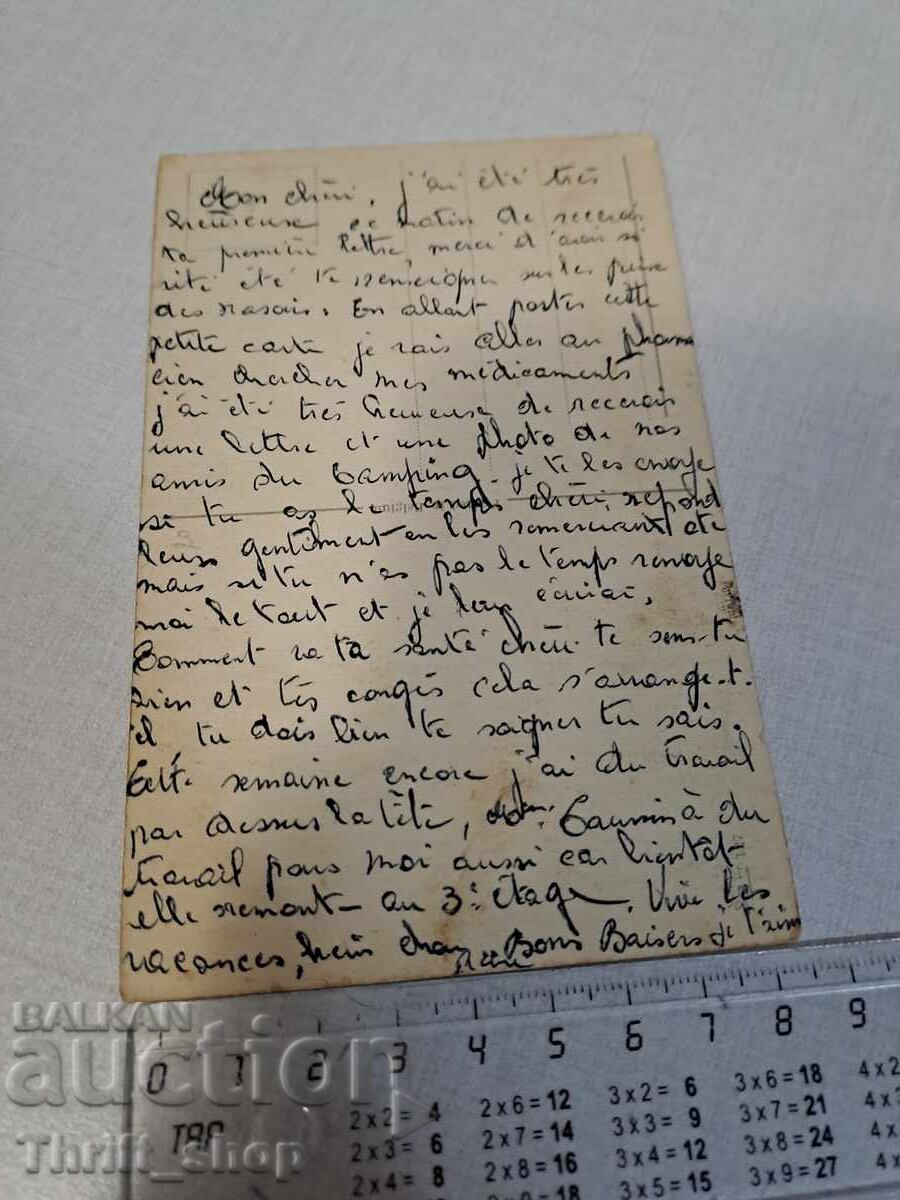 Mon chéri, j'ai été très
heureuse ce matin de recevoir
ta première lettre, merci d'avoir si
vite été te renseigner sur les
des rasoirs. En allant poster cette
petite carte je vais aller au pharma
cien chercher mes médicaments
j'ai été très heureuse de recevoir
une lettre et une photo de nos
amis du Camping. je te les envoye
si tu as le temps chéri, repond
leurs gentiment en les remerciant etc
mais si tu n'as pas le temps renvoye
moi le tout et je leur écrirai,
Comment va ta santé chéri te sens-tu
bien et tes congés cela s'arrange-t-
il tu dois bien te soigner tu sais.
Cette semaine encore j'ai du travail
par dessus la tête, à du
travail pour moi aussi car bientôt
elle remont au 3e étage. Vive les
vacances, hein Bons Baisers je t'aim
BALKAN
auction
Thrift_shop
0 1 2 3 4 5 6 7 8 9
2x2= 4 2x6=12 3x2= 6 3x6=18 4x2
2x3= 6 2x7=14 3x3= 9 3x7=21 4x3
2x4= 8 2x8=16 3x4=12 3x8=24 4x
2x9=18 3x5=15 3x9=27 4x